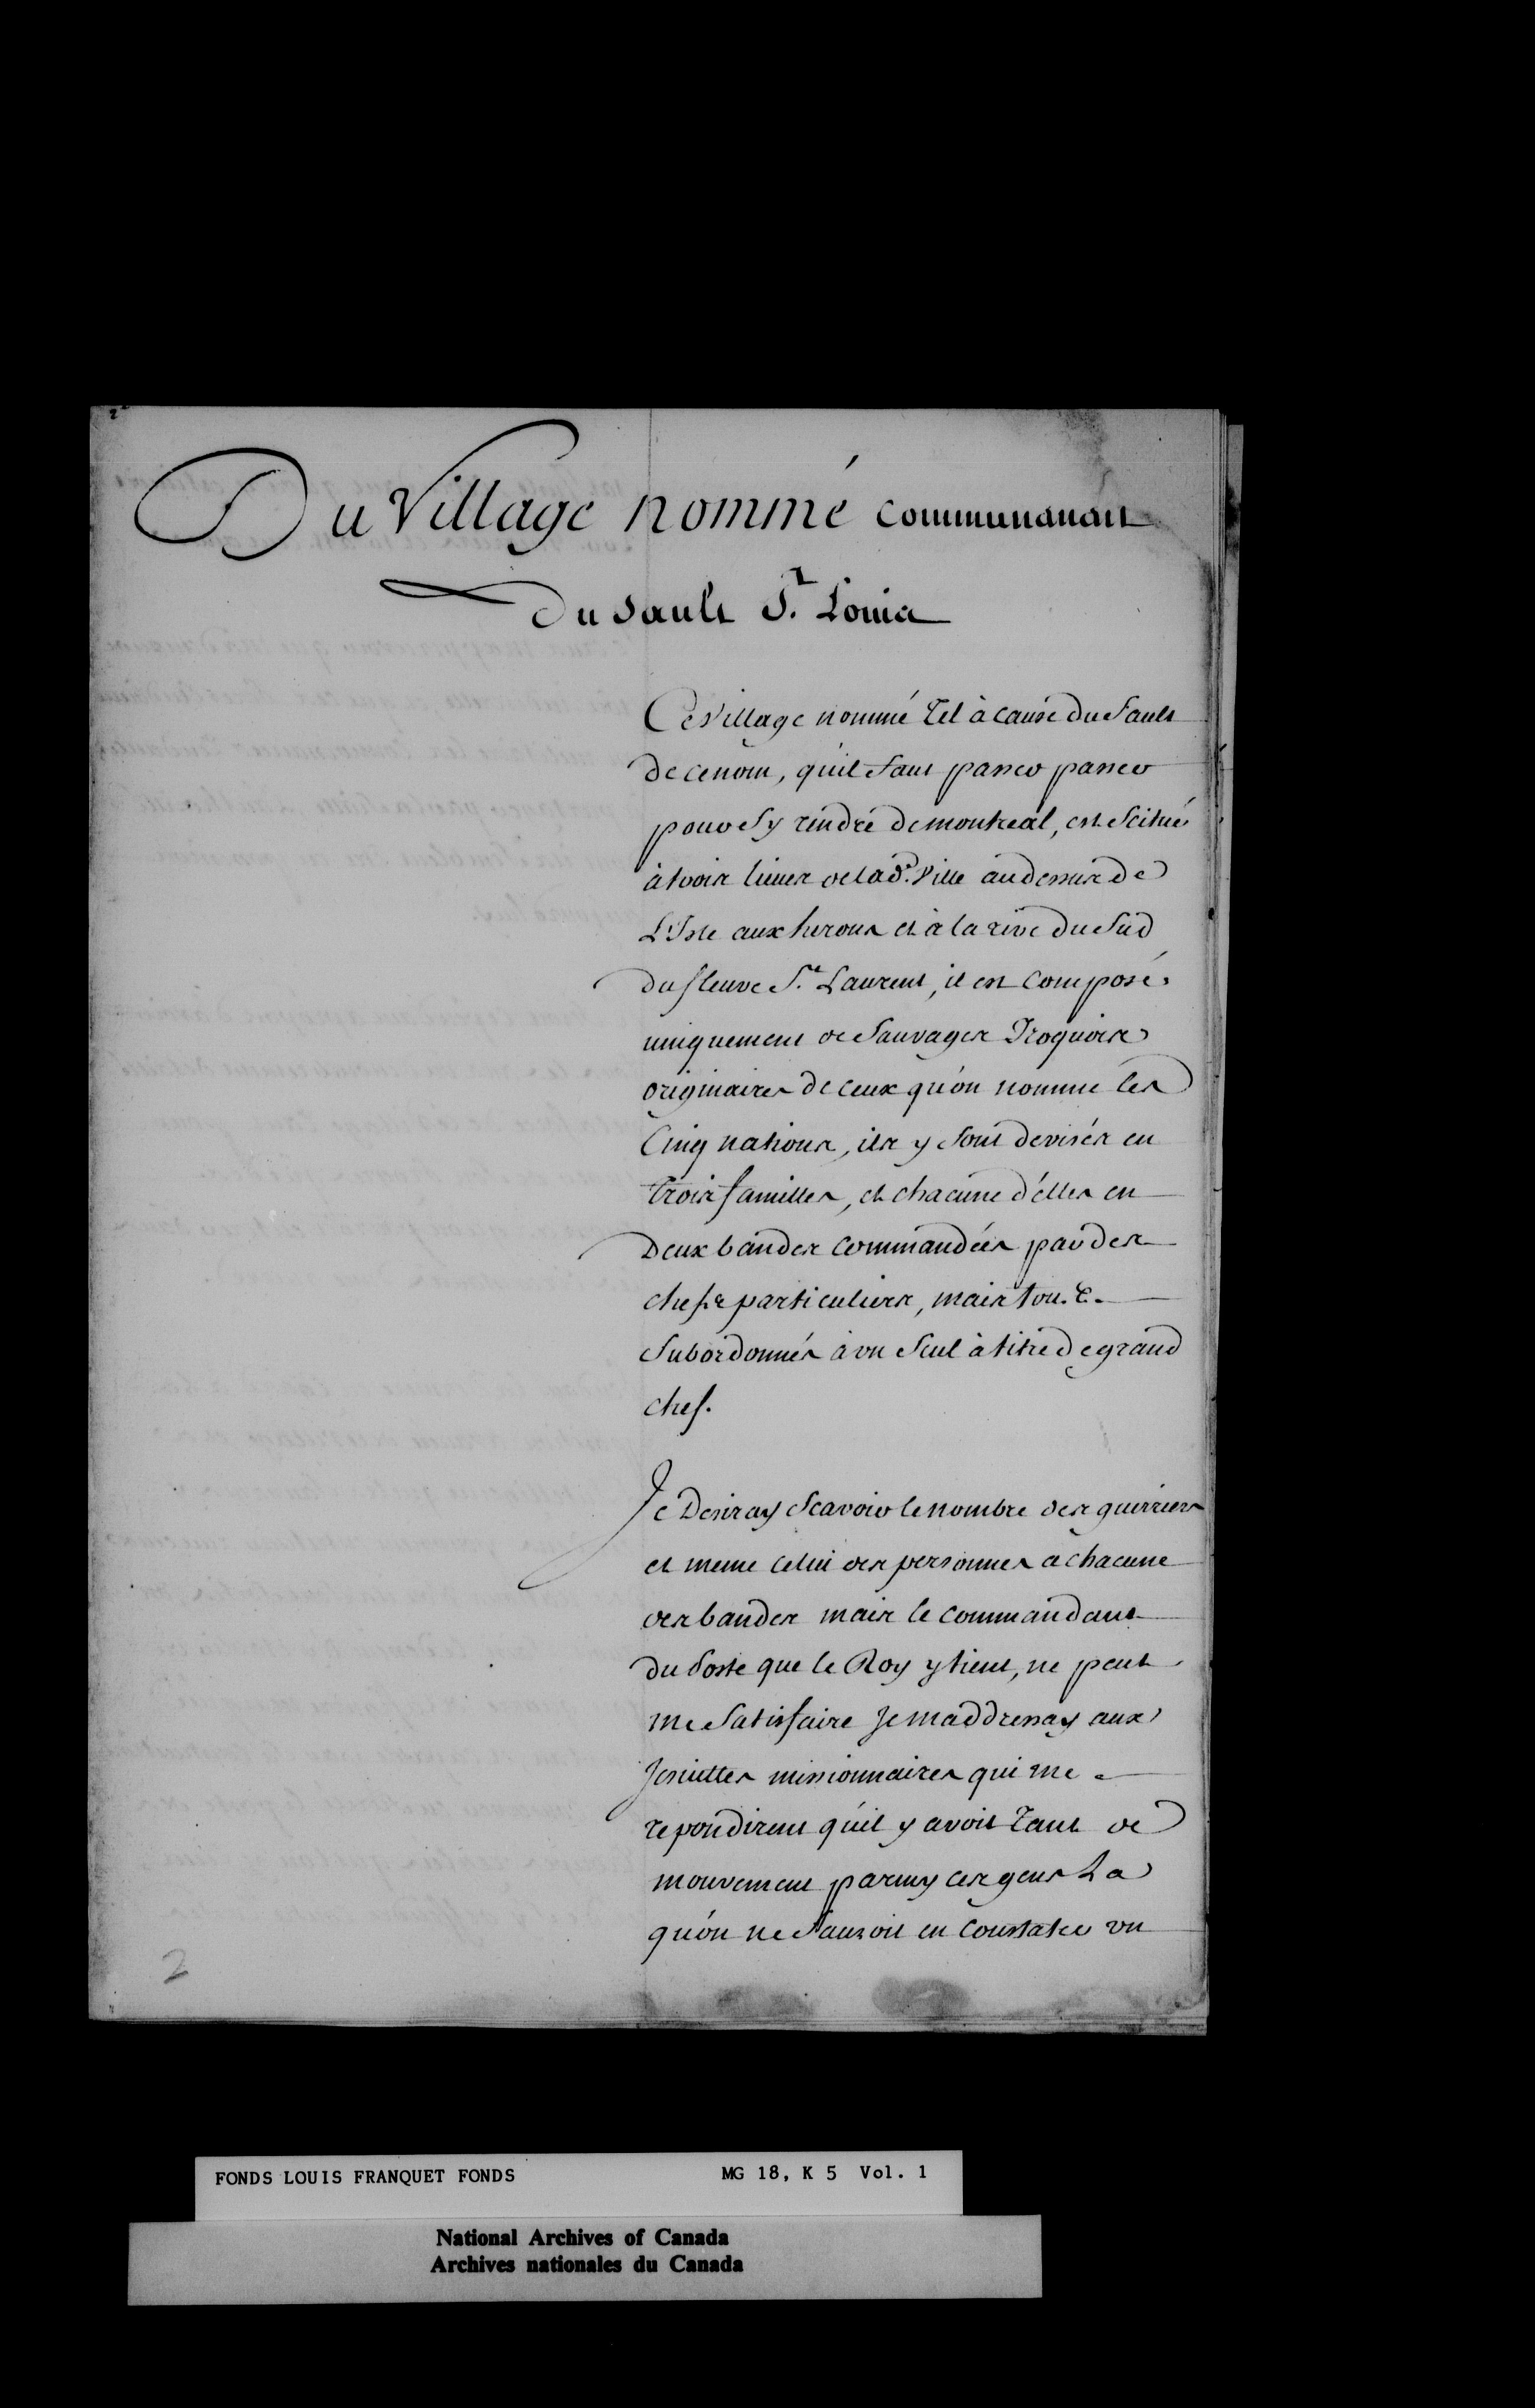 Du Village nommé communanait
du Sault St. Louis
Ce Village nommé tel à cause du Sault
de ce nom, qu'il faut passer passer
pour s'y rendre de montreal, est scitué
à trois lieües de lad.e Ville au dessus de
L'Isle aux herons et à la rive du Sud
du fleuve St. Laurent, il est composé
uniquement de Sauvages Iroquois
originaires de ceux qu'on nomme les
Cinq nations, ils y sont devisés en
trois familles, et chacune d'elles en
Deux bandes commandées par des
chefs particuliers, mais tous
Subordonnés à un seul à titre de grand
chef.
Je Desiray scavoir le nombre des guerriers
et meme celui des personnes a chacune
des bandes mais le commandant
du Poste que le Roy y tient, ne peut
me Satisfaire Je maddressay aux
Jesuittes missionnaires qui me
repondirent qu'il y avoit tant de
mouvement parmy ces gens La
qu'on ne Sauroit en constater un
2
FONDS LOUIS FRANQUET FONDS MG 18, K 5 Vol. 1
National Archives of Canada
Archives nationales du Canada